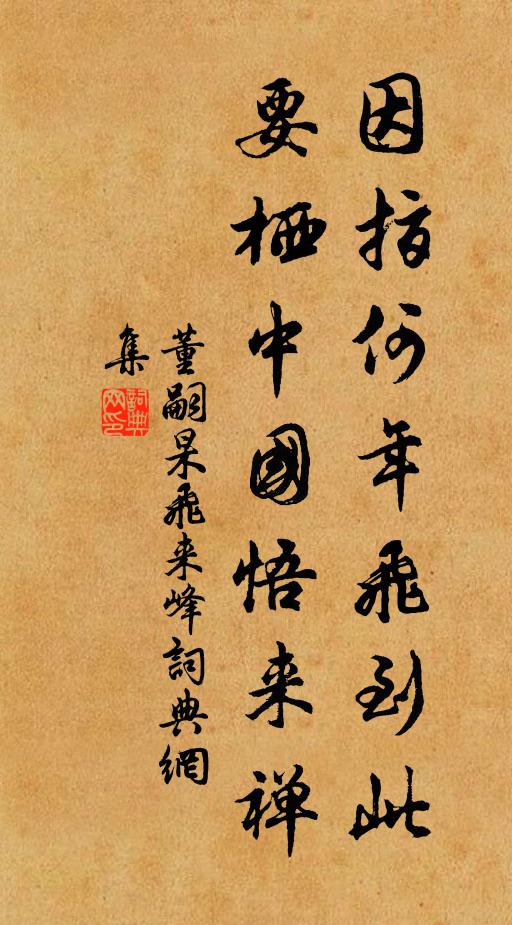 因指何年飛到此
要栖中國悟来禅
董嗣杲飛来峰詞典網
集
詞典网印